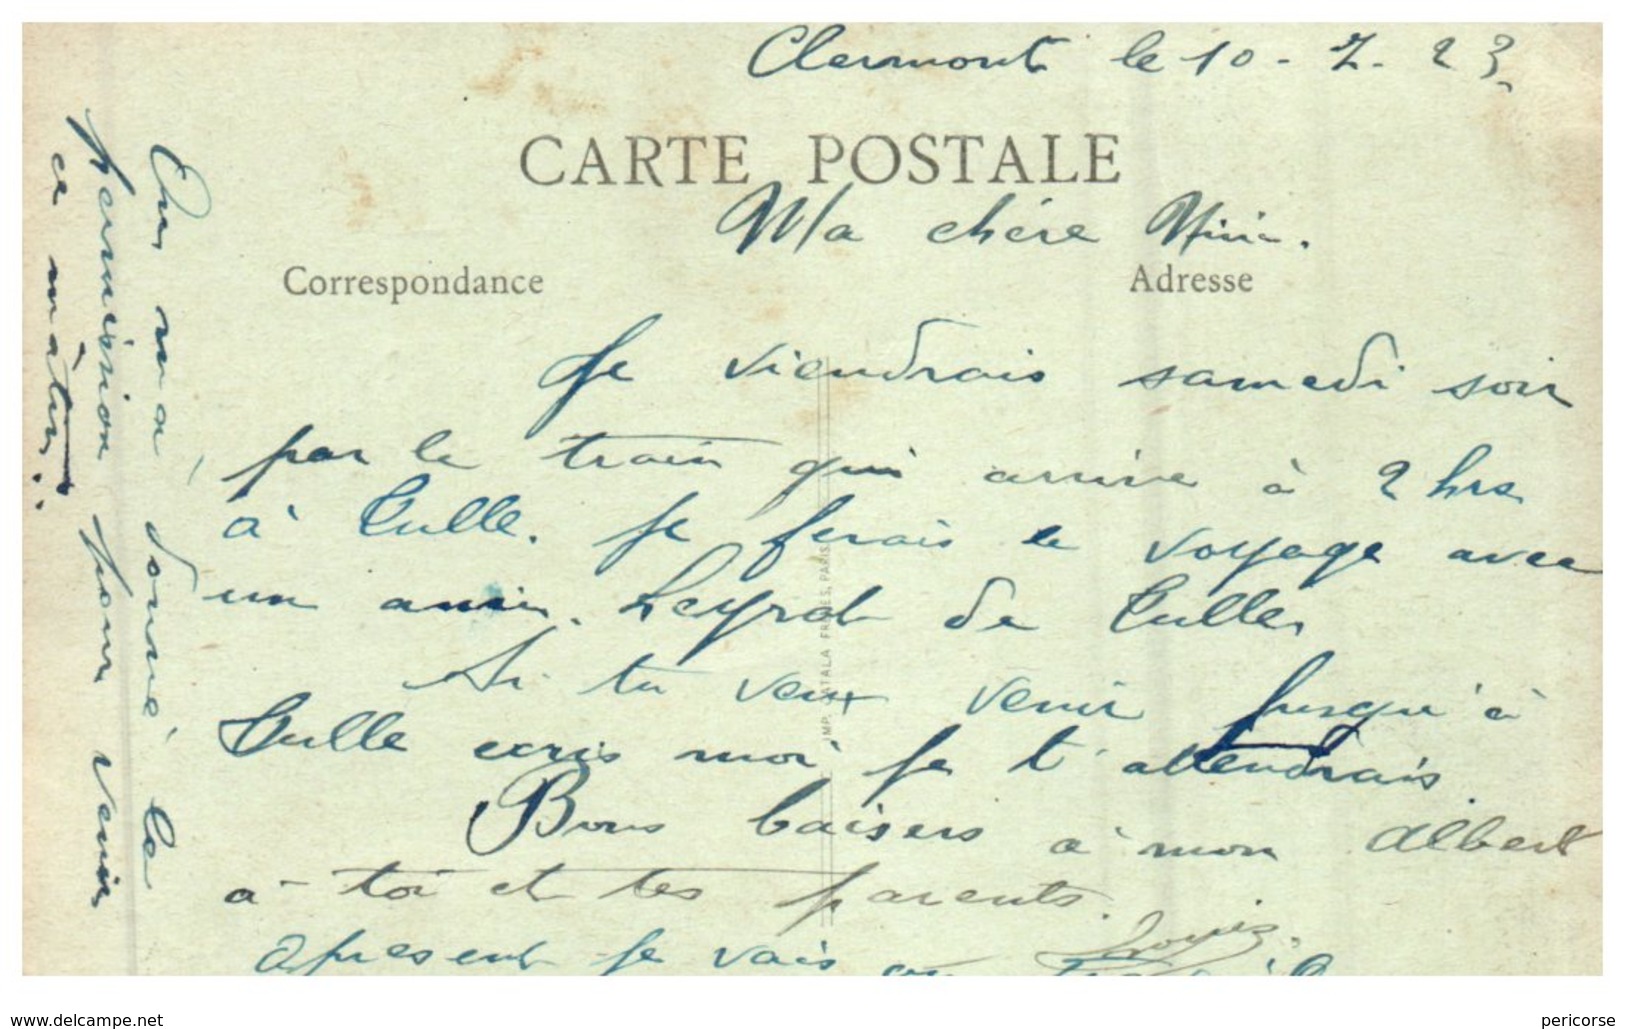 Clermont le 10 - 7 - 23
CARTE POSTALE
Ma chére Ninie.
Correspondance
Adresse
Je viendrais samedi soir
par le train qui arrive à 2 hrs
à Tulle. Je ferais le voyage avec
un ami. Leyrat de Tulle
Si tu veux venir jusqu'à
Tulle ecris moi je t'attendrais.
Bons baisers à mon Albert
à toi et tes parents.
Louis.
apresent je vais au
On ma donné la
permission pour venir
ce mâtin.
IMP. CATALA FRERES, PARIS.
www.delcampe.net
pericorse